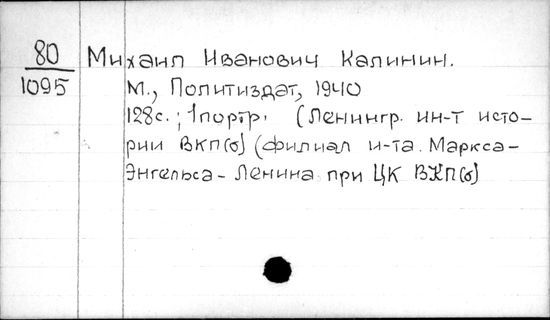 80 Михаил Иванович Калинин.
1095 М., Политиздат, 1940
128с.; 1портр. (Ленингр. ин-т исто-
рии ВКП(б) (филиал и-та Маркса-
Энгельса-Ленина при ЦК ВКП(б)